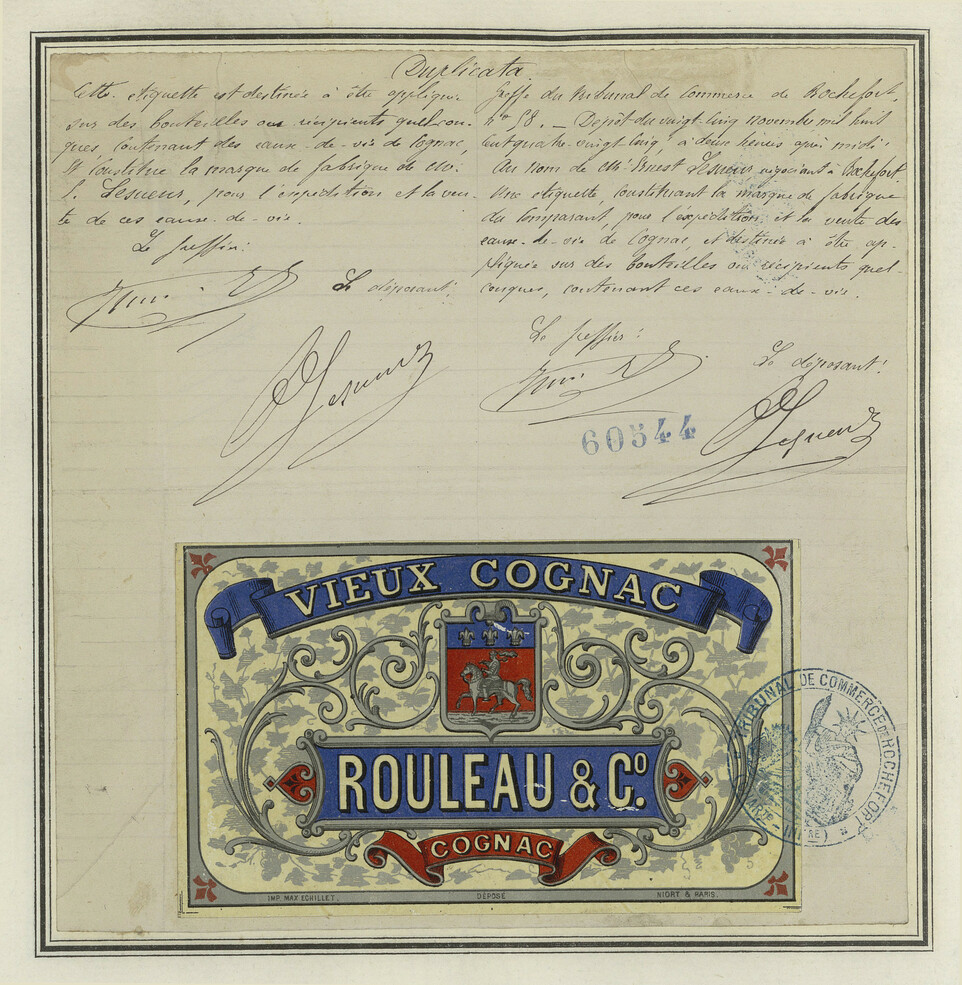 Duplicata.
Cette étiquette est destinée à être appliquée
sur des bouteilles ou récipients quelcon-
ques, contenant des eaux-de-vie de Cognac,
et constitue la marque de fabrique de M.
Lesueur, pour l'expédition et la ven-
te de ces eaux-de-vie.
Le greffier:
Le déposant:
Lesueur
Greffe du Tribunal de Commerce de Rochefort,
No 58. — Dépôt du vingt-cinq novembre mil huit
cent quatre-vingt-cinq, à deux heures après midi:
Au nom de Mr Ernest Lesueur négociant à Rochefort
Une étiquette, constituant la marque de fabrique
du comparant, pour l'expédition et la vente des
eaux-de-vie de Cognac, et destinée à être ap-
pliquée sur des bouteilles ou récipients quel-
conques, contenant ces eaux-de-vie.
Le greffier:
Le déposant:
Lesueur
60544
VIEUX COGNAC
ROULEAU & Co.
COGNAC
IMP. MAX ECHILLET.
DÉPOSÉ
NIORT & PARIS.
TRIBUNAL DE COMMERCE DE ROCHEFORT